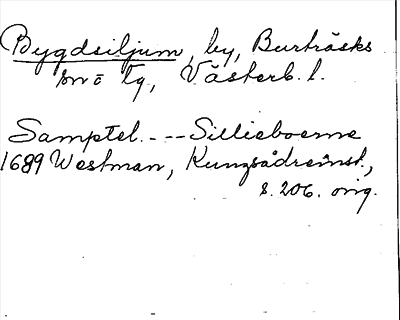 Bygdsiljum, by, Burträsks
sn o tg, Västerb. l.
Samptel. - - - Sillieboerne
1689 Westman, Kungsådreinst.,
s. 206. orig.